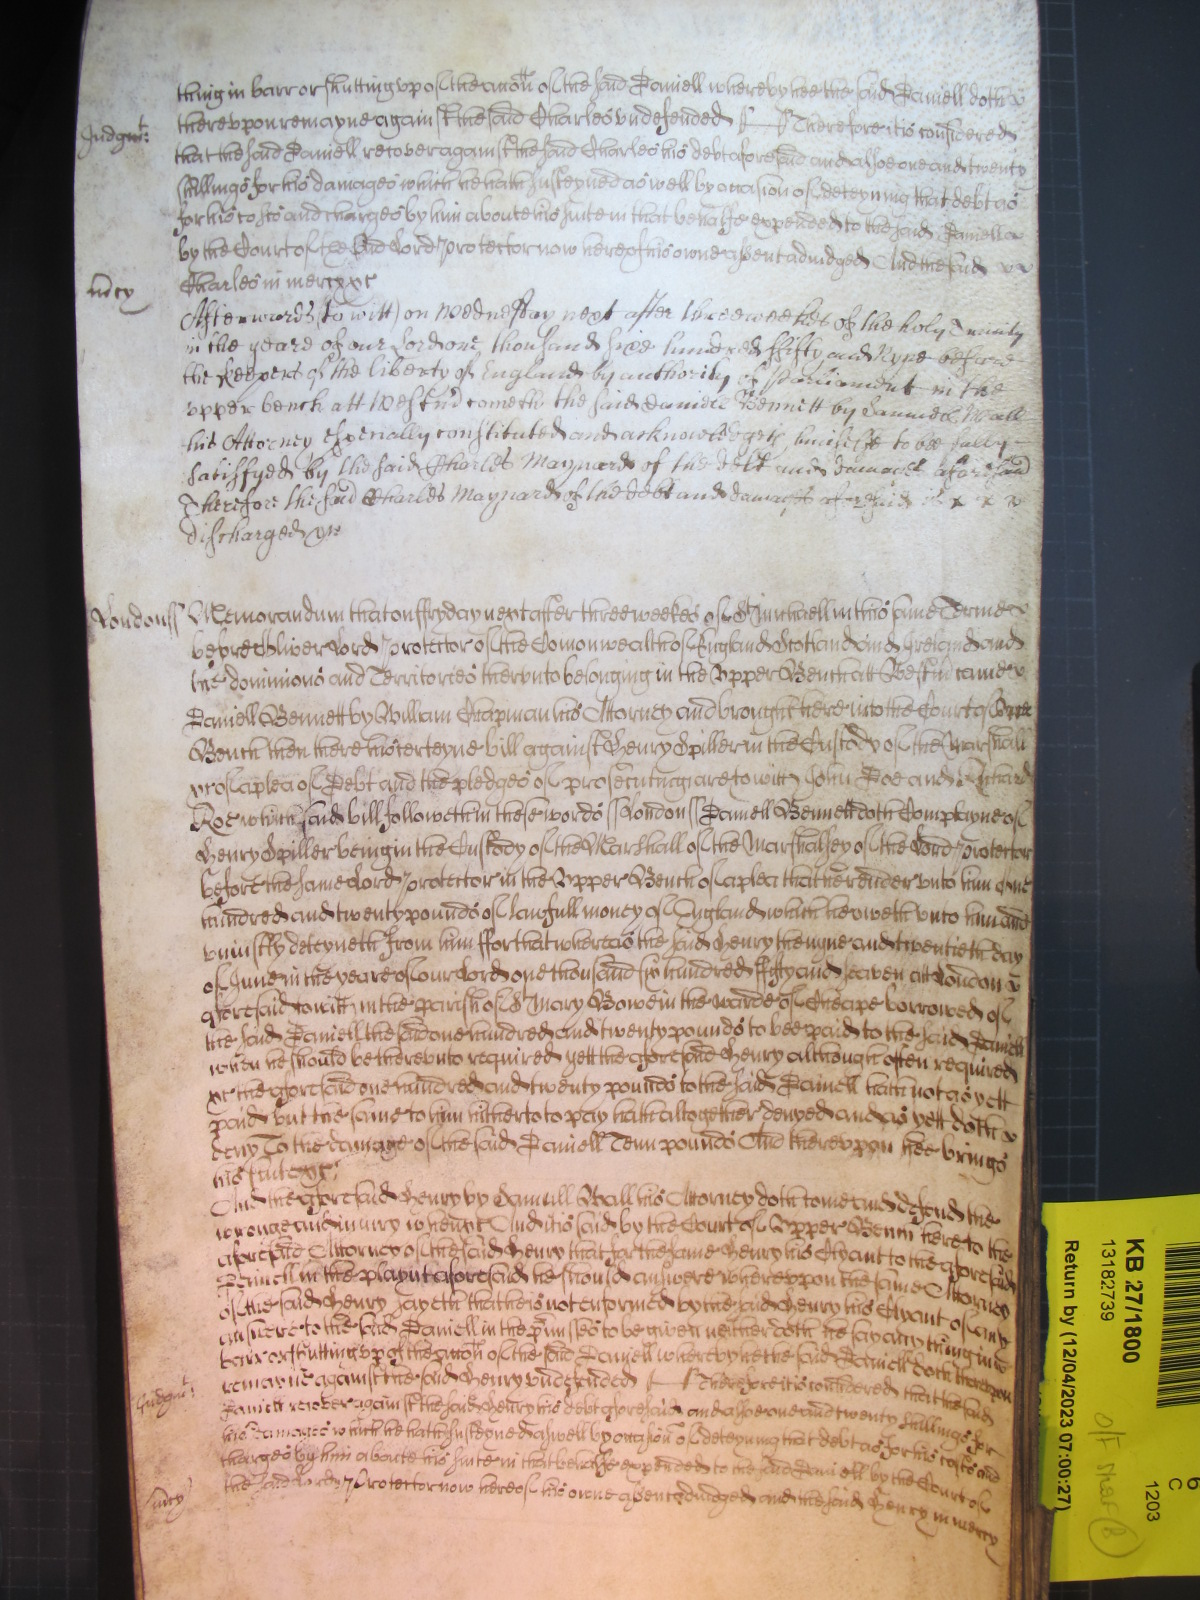 thing in barr or shutting upp of the accon̄ of the said Daniell whereby hee the said Daniell doth
thereuppon remayne against the said Charles undefended Therefore it is considered
Judgmt:
that the said Daniell recover against the said Charles his debt aforesaid and alsoe one and twenty
shillings for his damages which he hath susteyned as well by occasion of deteyning that debt as
for his costs and charges by him aboute his suite in that behalfe expended to the said Daniell
by the Court of the said Lord Protector now here of his owne assent adiudged And the said
mcy
Charles in mercy &c
Afterwards (to witt) on Wednesday next after three weekes of the holy Trinity
in the yeare of our Lord one thousand sixe hundred fifty and Nyne before
the keepers of the liberty of England by authority of Parliament in the
upper bench att Westmr cometh the said Daniell Bennett by Samuell Wall
his Attorney especially constituted and acknowledgeth himselfe to bee fully
satisfyed by the said Charles Maynard of the debt and damages aforesaid
Therefore the said Charles Maynard of the debt and damages aforesaid is
discharged &c
London ss Memorandum that on ffryday next after three weekes of St Michaell in this same Terme
before Oliver Lord Protector of the Comonwealth of England Scotland and Ireland and
the dominions and Territories thereunto belonging in the Upper Bench att Westm̄ came
Daniell Bennett by William Chapman his Attorney and brought here into the Court of Upper
Bench then there his certeyne bill against Henry Spiller in the Custody of the Marshall
&c of a plea of Debt and the pledges of prosecuting are to witt John Doe and Richard
Roe which said bill followeth in these words ss London ss Daniell Bennett doth Complayne of
Henry Spiller being in the Custody of the Marshall of the Marshalsey of the Lord Protector
before the same Lord Protector in the Upper Bench of a plea that he render unto him one
hundred and twenty pounds of lawfull money of England which he oweth unto him and
uniustly deteyneth from him ffor that whereas the said Henry the nyne and twentieth day
of June in the yeare of our Lord one thousand six hundred ffifty and seaven att London
aforesaid to witt in the parish of St Mary Bowe in the warde of Cheape borrowed of
the said Daniell the said one hundred and twenty pounds to bee paid to the said Daniell
when he should be thereunto required yett the aforesaid Henry although often required
&c the aforesaid one hundred and twenty pounds to the said Daniell hath not as yett
paid but the same to him hitherto to pay hath altogether denyed and as yett doth
deny To the damage of the said Daniell Tenn pounds And thereuppon hee brings
his suite &c
And the aforesaid Henry by Samuell Wall his Attorney doth come and defend the
wronge and iniury when &c And it is said by the Court of Upper Bench here to the
aforesaid Attorney of the said Henry that for the same Henry his Clyant to the aforesaid
Daniell in the playnt aforesaid he should answere whereuppon the same Attorney
of the said Henry sayeth that he is not enformed by the said Henry his Clyant of any
answere to the said Daniell in the p̄misses to be given neither doth he say any thing in
barr or shutting up of the accōn of the said Daniell whereby he the said Daniell doth thereuppon
remayne against the said Henry undefended Therefore it is considered that the said
Judgmt:
Daniell recover against the said Henry his debt aforesaid and alsoe one and twenty shillings for
his damages which he hath susteyned aswell by occasion of deteyning that debt as for his costs and
charges by him aboute his suite in that behalfe expended to the said Daniell by the Court of
mcy
the said Lord Protector now here of his owne assent adiudged and the said Henry in mercy
KB 27/1800
13182739
Return by (12/04/2023 07:00:27)
6
C
1203